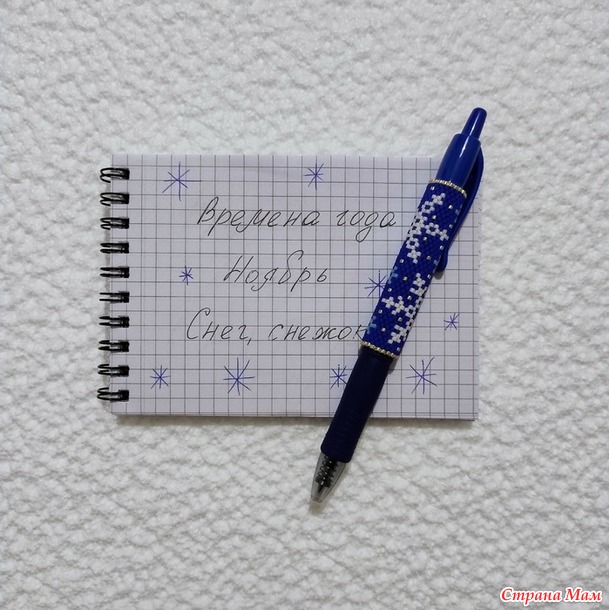 Времена года
Ноябрь
Снег, снежок
Страна Мам